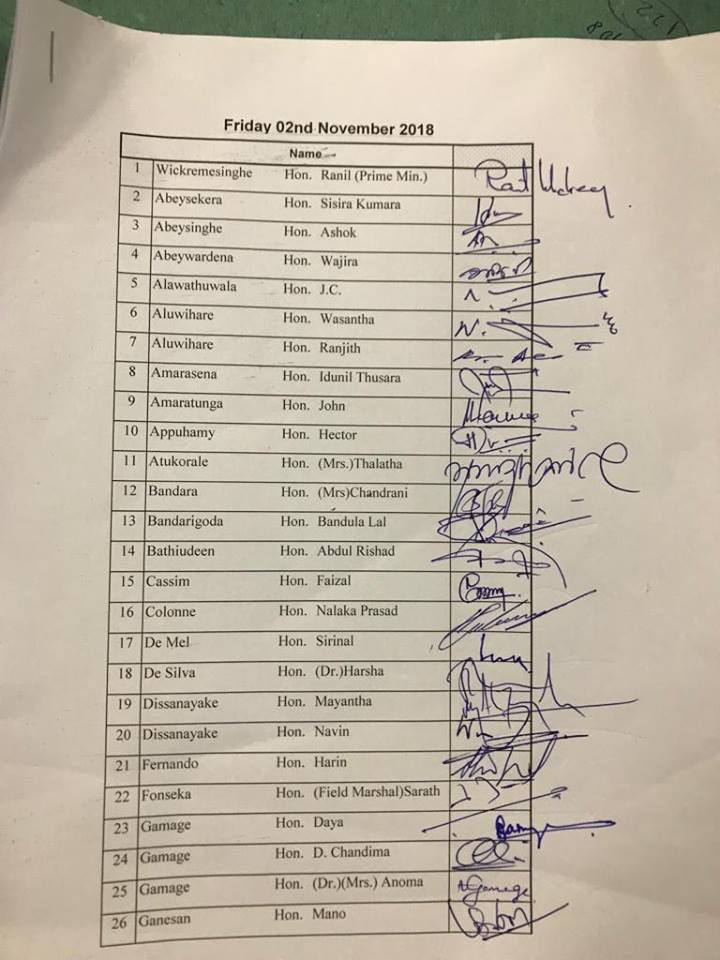 122
Friday 02nd November 2018
Name
1 Wickremesinghe Hon. Ranil (Prime Min.)
2 Abeysekera Hon. Sisira Kumara
3 Abeysinghe Hon. Ashok
4 Abeywardena Hon. Wajira
5 Alawathuwala Hon. J.C.
6 Aluwihare Hon. Wasantha
7 Aluwihare Hon. Ranjith
8 Amarasena Hon. Idunil Thusara
9 Amaratunga Hon. John
10 Appuhamy Hon. Hector
11 Atukorale Hon. (Mrs.)Thalatha
12 Bandara Hon. (Mrs)Chandrani
13 Bandarigoda Hon. Bandula Lal
14 Bathiudeen Hon. Abdul Rishad
15 Cassim Hon. Faizal
16 Colonne Hon. Nalaka Prasad
17 De Mel Hon. Sirinal
18 De Silva Hon. (Dr.)Harsha
19 Dissanayake Hon. Mayantha
20 Dissanayake Hon. Navin
21 Fernando Hon. Harin
22 Fonseka Hon. (Field Marshal)Sarath
23 Gamage Hon. Daya
24 Gamage Hon. D. Chandima
25 Gamage Hon. (Dr.)(Mrs.) Anoma Gamage
26 Ganesan Hon. Mano